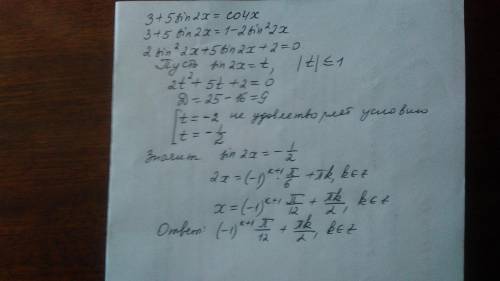 3+5sin2x = co4x
3+5sin2x = 1-2sin²2x
2sin²2x+5sin2x+2=0
Пусть sin2x=t, |t|≤1
2t²+5t+2=0
D=25-16=9
[t=-2 не удовлетворяет условию
[t=-1/2
Значит sin2x=-1/2
2x=(-1)^{k+1}·π/6+πk, k∈z
x=(-1)^{k+1}π/12+πk/2, k∈z
Ответ: (-1)^{k+1}π/12+πk/2, k∈z